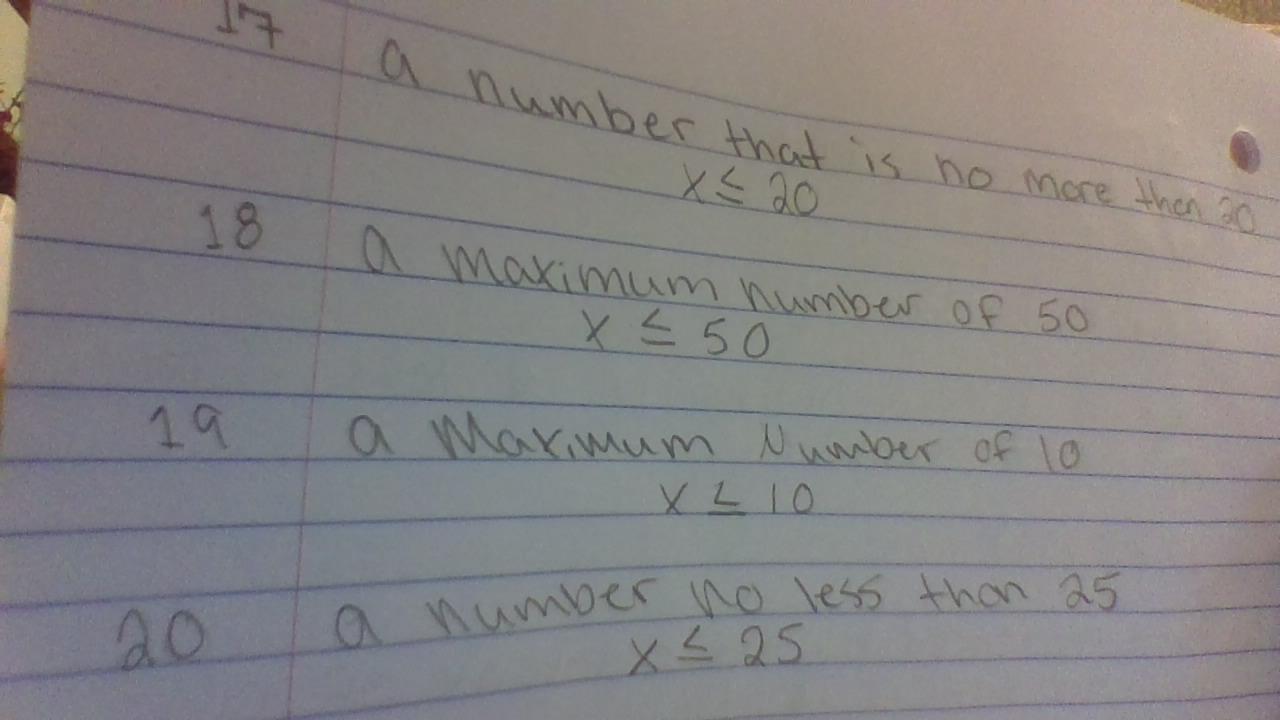 17 a number that is no more then 20
x ≤ 20
18 a maximum number of 50
x ≤ 50
19 a Maximum Number of 10
x ≤ 10
20 a number no less than 25
x ≤ 25